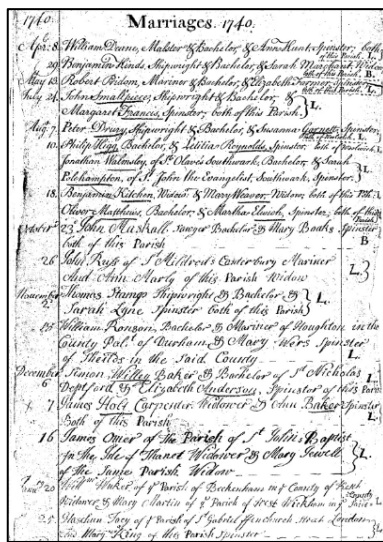 1740. Marriages. 1740.
Apr: 8. William Deane, Malster & Bachelor, & Ann Hunt Spinster; both
of this Parish. L.
29 Benjamin Hinds Shipwright & Bachelor, & Sarah Marchant Widow
both of this Parish. B.
May 13. Robert Ridom, Mariner & Bachelor, & Elizabeth Farmer Spinster
both of this Parish. L.
July 24. John Smallpiece, Shipwright & Bachelor, &
Margaret Francis, Spinster; both of this Parish } L.
Aug. 7. Peter Drury Shipwright & Bachelor, & Susanna Garnett, Spinster,
10. Philip Higg, Bachelor, & Letitia Reynolds, Spinster, both of
Jonathan Walmsley, of St. Olaves Southwark, Bachelor, & Sarah
Pelchampton, of St. John the Evangelist, Southwark, Spinster. } L.
18. Benjamin Kitchen, Widowr. & Mary Weaver, Widow, both of this Psh.
Oliver Matthews, Bachelor, & Martha Elwook, Spinster, both of this
Parish
October 23 John Maskall Sawyer Bachelor & Mary Banks Spinster
both of this Parish B
26 John Russ of St. Mildred's Canterbury Mariner
And Ann Marly of this Parish Widow } L.
November 2. Thomas Stamps Shipwright & Bachelor &
Sarah Lyne Spinster both of this Parish } L.
25 William Ronson, Bachelor & Mariner of Houghton in the
County Pal. of Durham & Mary Spinster
of in the Said County L.
December 6 Simon Willey Baker & Bachelor of St. Nicholas
Deptford & Elizabeth Anderson, Spinster of this Parish
7 James Holt Carpenter Widower & Ann Baker Spinster
Both of this Parish L.
16 James Omer of the Parish of St. John's Baptist
In the Isle of Thanet Widower & Mary Jewell
of the Same Parish Widow } L.
20 Willm. Waker of ye Parish of Beckenham in ye County of Kent
Widower & Mary Martin of ye Parish of West Wickham in ye Said County L.
25 Tacy of ye Parish of St. Gabriel Fenchurch Street London
And Mary King of this Parish Spinster L.